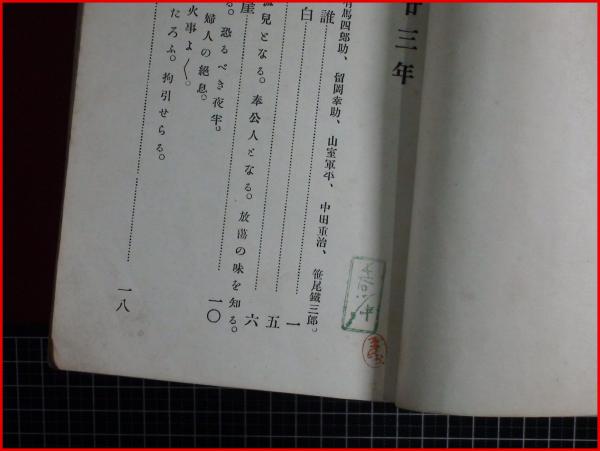 廿三年
有馬四郎助、留岡幸助、山室軍平、中田重治、笹尾鐵三郎。
誰 一
白 五
孤兒となる。奉公人となる。放蕩の味を知る。
崖 六
る。恐るべき夜半。
婦人の絕息。 一〇
火事よ〱。
たろふ。拘引せらる。
一八